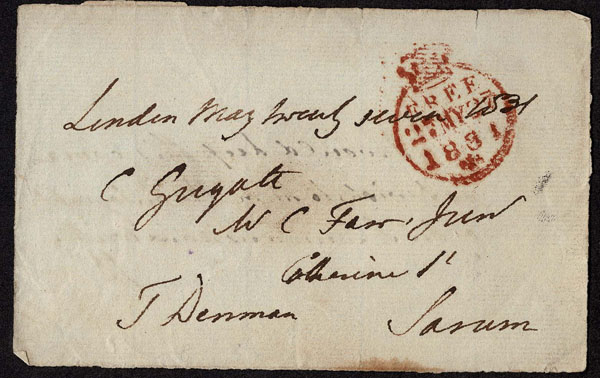 London May twenty seven 1831
FREE
27 MY 27
1831
C
Mr C Farr, Junr
Catherine St
T Denman
Sarum